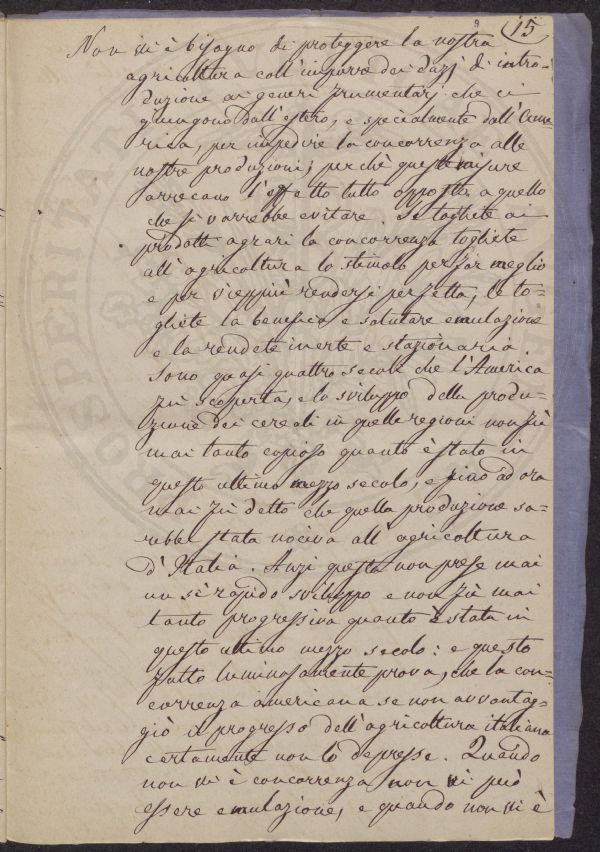 15
Non vi è bisogno di proteggere la nostra
agricoltura coll'imporre dei dazj di intro-
duzione ai generi frumentarj che ci
giungono dall'estero, e specialmente dall'Ame-
rica, per impedire la concorrenza alle
nostre produzioni; perchè queste misure
arrecano l'effetto tutto opposto a quello
che si vorrebbe evitare. Se togliete ai
prodotti agrari la concorrenza togliete
all'agricoltura lo stimolo per far meglio
e per vieppiù rendersi perfetta, le to-
gliete la benefica e salutare emulazione
e la rendete inerte e stazionaria
Sono quasi quattro secoli che l'America
fù scoperta, e lo sviluppo della produ-
zione dei cereali in quelle regioni non fù
mai tanto copioso quanto è stato in
questo ultimo mezzo secolo, e fino ad ora
mai fù detto che quella produzione sa-
rebbe stata nociva all'agricoltura
d'Italia. Anzi questa non prese mai
un sì rapido sviluppo e non fù mai
tanto progressiva quanto è stata in
questo ultimo mezzo secolo: e questo
fatto luminosamente prova, che la con-
correnza americana se non avvantag-
giò il progresso dell'agricoltura italiana
certamente non lo depresse. Quando
non vi è concorrenza non vi può
essere emulazione, e quando non vi è
PROSPERITATI